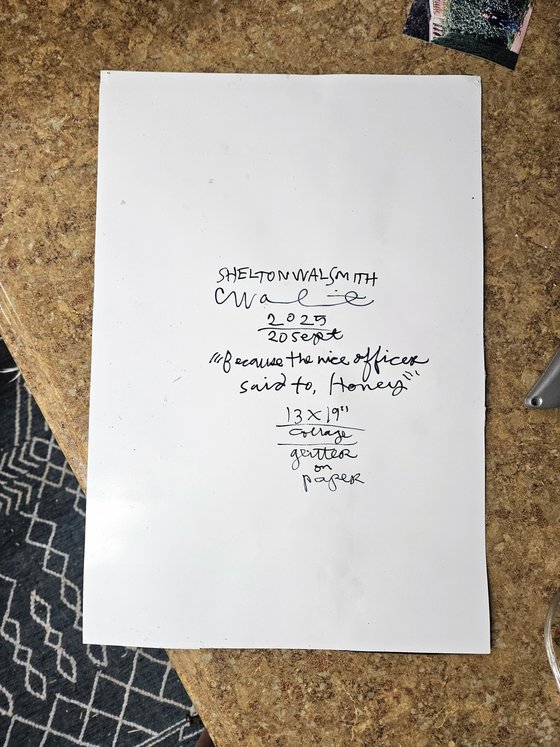 SHELTON WALSMITH
2025
20 Sept
"Because the nice officer
said to, Honey"
13 X 19"
collage
glitter
on
paper